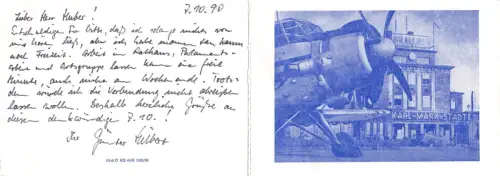 7.10.90
Lieber Herr Huber!
Entschuldigen Sie bitte, daß ich so lange nichts von
mir hören ließ, aber ich habe momentan kaum
noch Freizeit. Arbeit im Rathaus, Parlaments-
arbeit und Ortsgruppe lassen kaum eine freie
Minute, auch nicht am Wochenende. Trotz-
dem würde ich die Verbindung nicht abreißen
lassen wollen. Deshalb herzliche Grüße an
diesem denkwürdige 7.10.!
Ihr Günter
KARL-MARX-STADT